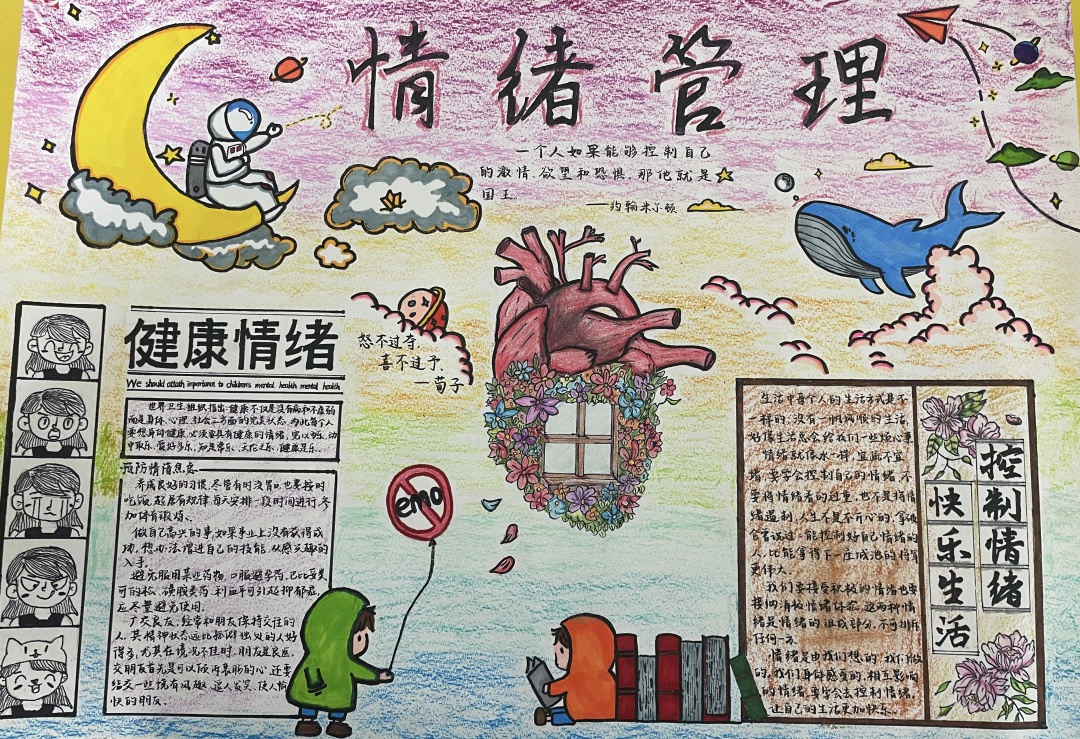 情绪管理
一个人如果能够控制自己
的激情、欲望和恐惧，那他就是
国王
——约翰米尔顿
健康情绪
We should attach importance to children's mental health mental health
怒不过夺
喜不过予
—荀子
世界卫生组织指出：健康不仅是没有病和不虚弱
而是身体、心理、社会三方面的完美状态。为此每个人
要想身体健康，必须要具有健康的情绪，
中取乐、爱好多乐、知足常乐、天伦之乐、健康是乐。
预防情绪焦虑
养成良好的习惯，尽管有时没胃口也要按时
吃饭，起居有规律，每天安排一段时间进行，参
加体育锻炼、
做自己高兴的事，如果事业上没有获得成
功，想办法增进自己的技能，从感兴趣的
入手。
避免服用某些药物，口服避孕药，巴比妥类
可的松、磺胺类药、利血平可引起抑郁症，
应尽量避免使用。
广交良友，经常和朋友保持交往的
人，其精神状态远比孤僻独处的人好
得多，尤其在境况不佳时，朋友是良医，
交朋友首先是可以倾诉衷肠的心，还要
结交一些饶有风趣、逗人发笑、使人愉
快的朋友。
emo
生活中每个人的生活方式是不
一样的，没有一帆风顺的生活，
好像生活总会给我们一些烦心事
情绪就像水一样，宜疏不宜
堵，要学会控制自己的情绪，不
要将情绪看的过重，也不是将情
绪遏制，人生不是不开心的，拿破
仑曾说过，能控制好自己情绪的
人，比能拿得下一座城池的将军
更伟大。
我们要接受积极的情绪也要
接纳消极情绪存在，这两种情
绪是情绪的组成部分，不可排斥
任何一方。
情绪是由我们想的，我们做
的，我们身体感受的，相互影响
的情绪，要学会去控制情绪，
让自己的生活更加快乐。
控制情绪
快乐生活